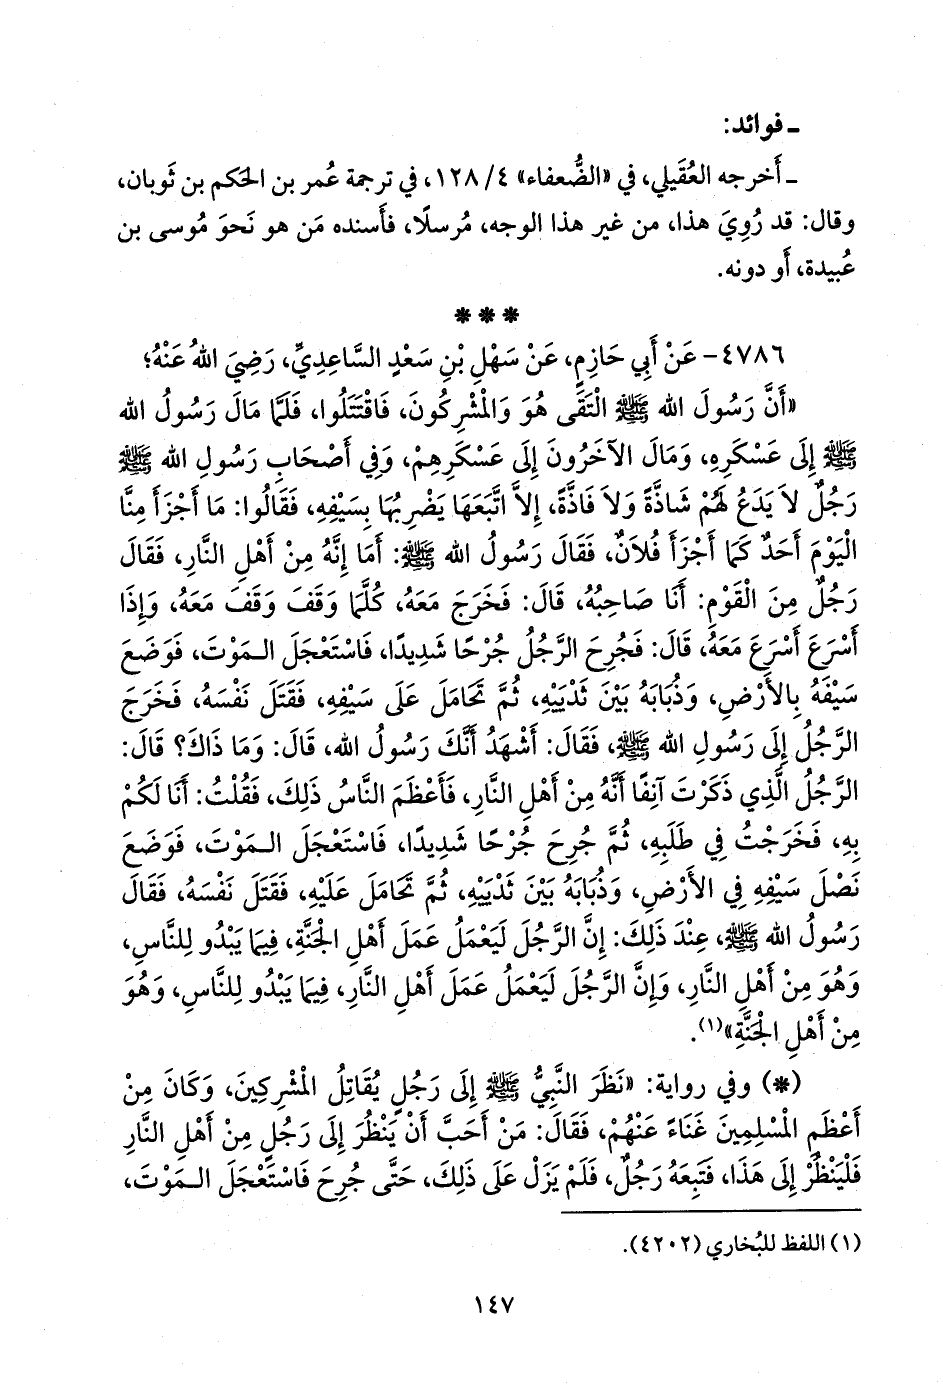 ـ فوائد:
ـ أَخرجه العُقَيلي، في «الضُّعفاء» ٤/ ١٢٨، في ترجمة عُمر بن الحَكم بن ثَوبان،
وقال: قد رُوِيَ هذا، من غير هذا الوجه، مُرسلًا، فأَسنده مَن هو نَحوَ مُوسى بن
عُبيدة، أَو دونه.
***
٤٧٨٦- عَنْ أَبِي حَازِمٍ، عَنْ سَهْلِ بْنِ سَعْدٍ السَّاعِدِيِّ، رَضِيَ اللهُ عَنْهُ؛
«أَنَّ رَسُولَ الله ﷺ الْتَقَى هُوَ وَالْمُشْرِكُونَ، فَاقْتَتَلُوا، فَلَمَّا مَالَ رَسُولُ الله
ﷺ إِلَى عَسْكَرِهِ، وَمَالَ الآخَرُونَ إِلَى عَسْكَرِهِمْ، وَفِي أَصْحَابِ رَسُولِ الله ﷺ
رَجُلٌ لاَ يَدَعُ لَهُمْ شَاذَّةً وَلاَ فَاذَّةً، إِلاَّ اتَّبَعَهَا يَضْرِبُهَا بِسَيْفِهِ، فَقَالُوا: مَا أَجْزَأَ مِنَّا
الْيَوْمَ أَحَدٌ كَمَا أَجْزَأَ فُلاَنٌ، فَقَالَ رَسُولُ الله ﷺ: أَمَا إِنَّهُ مِنْ أَهْلِ النَّارِ، فَقَالَ
رَجُلٌ مِنَ الْقَوْمِ: أَنَا صَاحِبُهُ، قَالَ: فَخَرَجَ مَعَهُ، كُلَّمَا وَقَفَ وَقَفَ مَعَهُ، وَإِذَا
أَسْرَعَ أَسْرَعَ مَعَهُ، قَالَ: فَجُرِحَ الرَّجُلُ جُرْحًا شَدِيدًا، فَاسْتَعْجَلَ الـمَوْتَ، فَوَضَعَ
سَيْفَهُ بِالأَرْضِ، وَذُبَابَهُ بَيْنَ ثَدْيَيْهِ، ثُمَّ تَحَامَلَ عَلَى سَيْفِهِ، فَقَتَلَ نَفْسَهُ، فَخَرَجَ
الرَّجُلُ إِلَى رَسُولِ الله ﷺ، فَقَالَ: أَشْهَدُ أَنَّكَ رَسُولُ الله، قَالَ: وَمَا ذَاكَ؟ قَالَ:
الرَّجُلُ الَّذِي ذَكَرْتَ آنِفًا أَنَّهُ مِنْ أَهْلِ النَّارِ، فَأَعْظَمَ النَّاسُ ذَلِكَ، فَقُلْتُ: أَنَا لَكُمْ
بِهِ، فَخَرَجْتُ فِي طَلَبِهِ، ثُمَّ جُرِحَ جُرْحًا شَدِيدًا، فَاسْتَعْجَلَ الـمَوْتَ، فَوَضَعَ
نَصْلَ سَيْفِهِ فِي الأَرْضِ، وَذُبَابَهُ بَيْنَ ثَدْيَيْهِ، ثُمَّ تَحَامَلَ عَلَيْهِ، فَقَتَلَ نَفْسَهُ، فَقَالَ
رَسُولُ الله ﷺ، عِنْدَ ذَلِكَ: إِنَّ الرَّجُلَ لَيَعْمَلُ عَمَلَ أَهْلِ الْجَنَّةِ، فِيمَا يَبْدُو لِلنَّاسِ،
وَهُوَ مِنْ أَهْلِ النَّارِ، وَإِنَّ الرَّجُلَ لَيَعْمَلُ عَمَلَ أَهْلِ النَّارِ، فِيمَا يَبْدُو لِلنَّاسِ، وَهُوَ
مِنْ أَهْلِ الْجَنَّةِ»(١).
(*) وفي رواية: «نَظَرَ النَّبِيُّ ﷺ إِلَى رَجُلٍ يُقَاتِلُ الْمُشْرِكِينَ، وَكَانَ مِنْ
أَعْظَمِ الْمُسْلِمِينَ غَنَاءً عَنْهُمْ، فَقَالَ: مَنْ أَحَبَّ أَنْ يَنْظُرَ إِلَى رَجُلٍ مِنْ أَهْلِ النَّارِ
فَلْيَنْظُرْ إِلَى هَذَا، فَتَبِعَهُ رَجُلٌ، فَلَمْ يَزَلْ عَلَى ذَلِكَ، حَتَّى جُرِحَ فَاسْتَعْجَلَ الـمَوْتَ،
(١) اللفظ للبُخاري (٤٢٠٢).
١٤٧